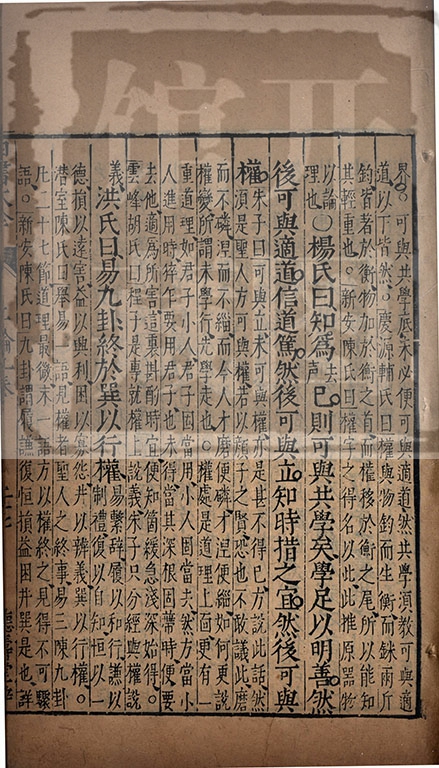 界○可與共學底未必便可與適道然共學須教可與適
道以下皆然○慶源輔氏曰權與物鈞而生衡而銖兩斤
鈞皆著於衡物加於衡之首而權移於衡之尾所以能知
其輕重也○新安陳氏曰權字之得名以此此推原器物
以論理也○楊氏曰知為去聲己則可與共學矣學足以明善然
後可與適道信道篤然後可與立知時措之宜然後可與
權朱子曰可與立未可與權亦是甚不得已方説此話然
權須是聖人方可與權若以顔子之賢恐也不敢議此磨
而不磷涅而不緇而今人才磨便磷才涅便緇如何更説
權變所謂未學行先學走也○權處是道理上面更有一
重道理如君子小人君子固當用小人固當去然方當小
人進用時猝乍要用君子也未得當其深根固蔕時便要
去他適為所害這裏斟酌時宜便知箇緩急淺深始得○
雲峰胡氏曰程子是專就權上説義朱子只分經與權説
義洪氏曰易九卦終於巽以行權易繫辭履以和行謙以
制禮復以自知恒以一
德損以遠害益以興利困以寡怨井以辨義巽以行權○
潛室陳氏曰舉易一語見權者聖人之終事易三陳九卦
凡二十七節道理最後末一語方以權終之見得不可驟
語○新安陳氏曰九卦謂履謙復恒損益困井巽是也詳